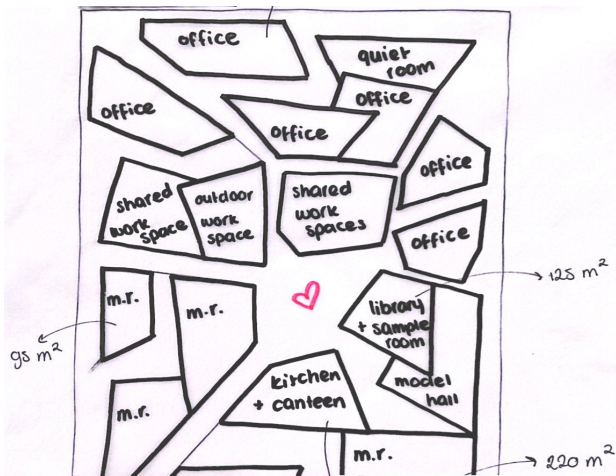 office
quiet
room
office
office
office
office
shared
work
space
outdoor
work
space
shared
work
spaces
office
125 m²
m.r.
m.r.
library
+ sample
room
95 m²
model
hall
kitchen
+ canteen
m.r.
m.r.
220 m²